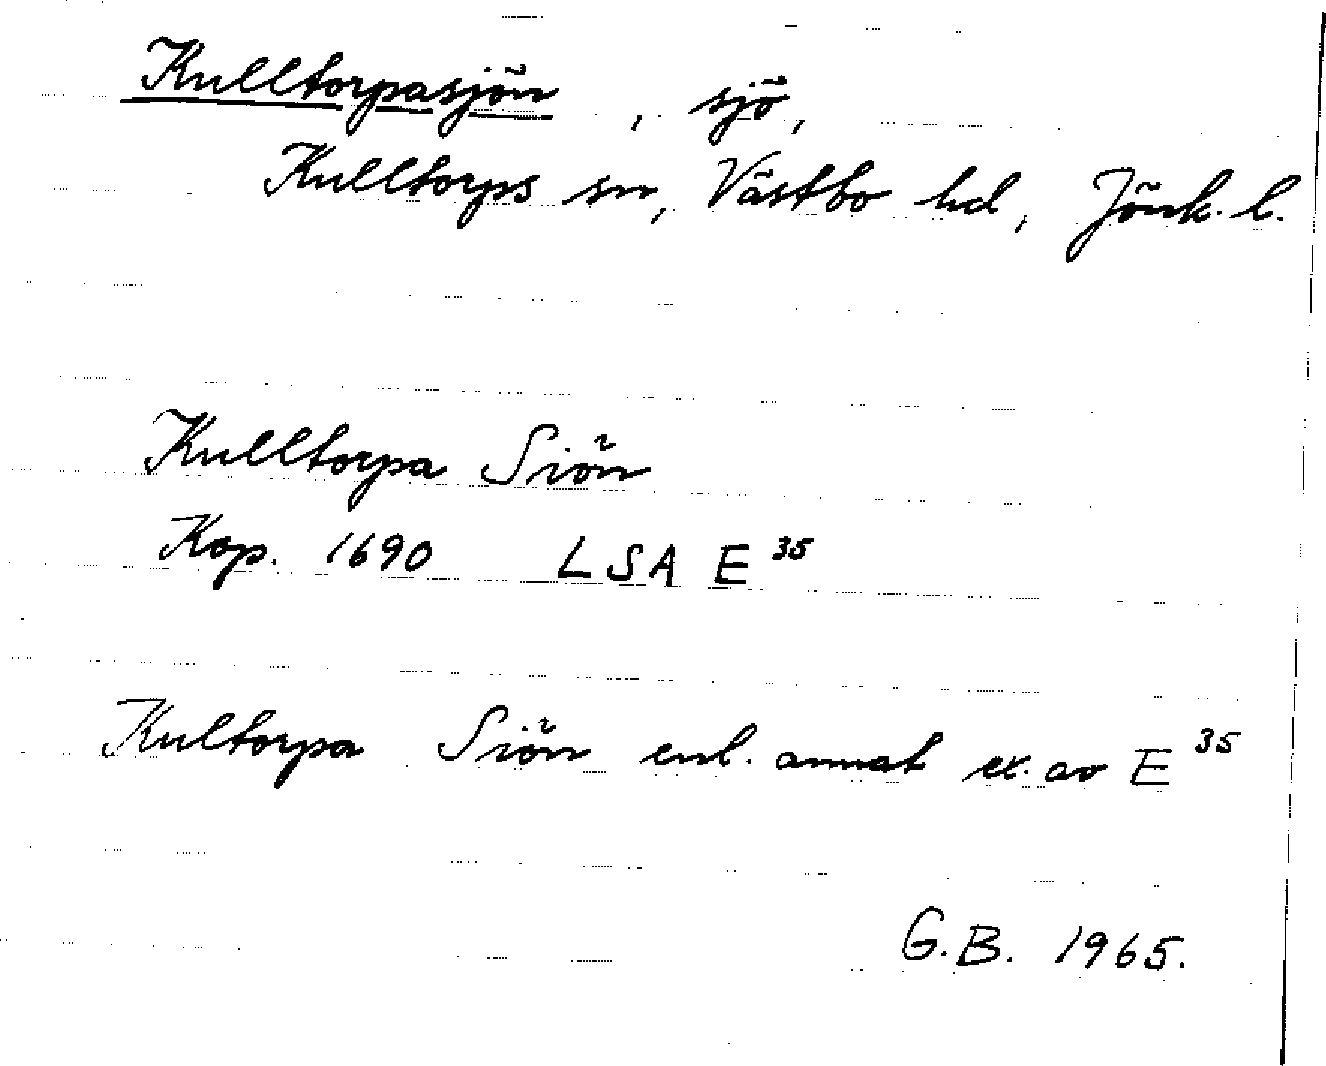 Kulltorpasjön, sjö,
Kulltorps sn, Västbo hd, Jönk. l.
Kulltorpa Siön
Kop. 1690 LSA E 35
Kultorpa Siön enl. annat ex. av E 35
G.B. 1965.